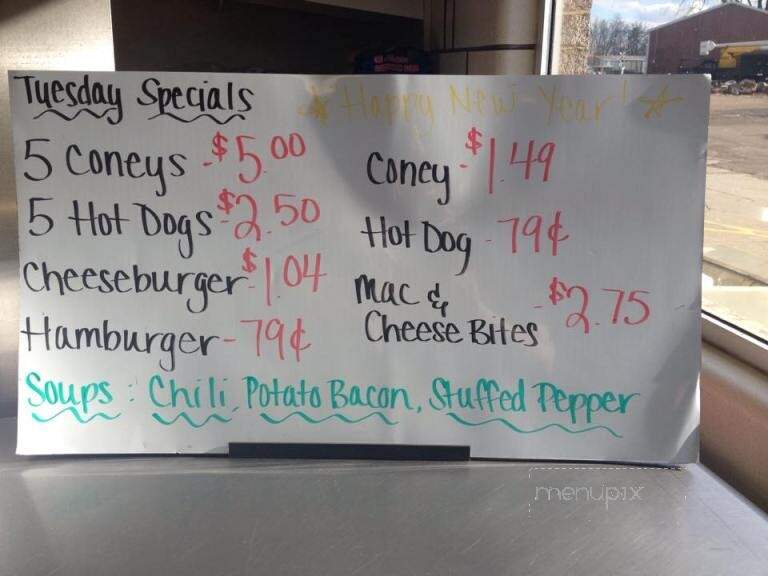 Tuesday Specials
☆ Happy New Year! ☆
5 Coneys - $5.00
5 Hot Dogs - $2.50
Cheeseburger - $1.04
Hamburger - 79¢
Coney - $1.49
Hot Dog - 79¢
Mac &
Cheese Bites - $2.75
Soups: Chili, Potato Bacon, Stuffed Pepper
menupix